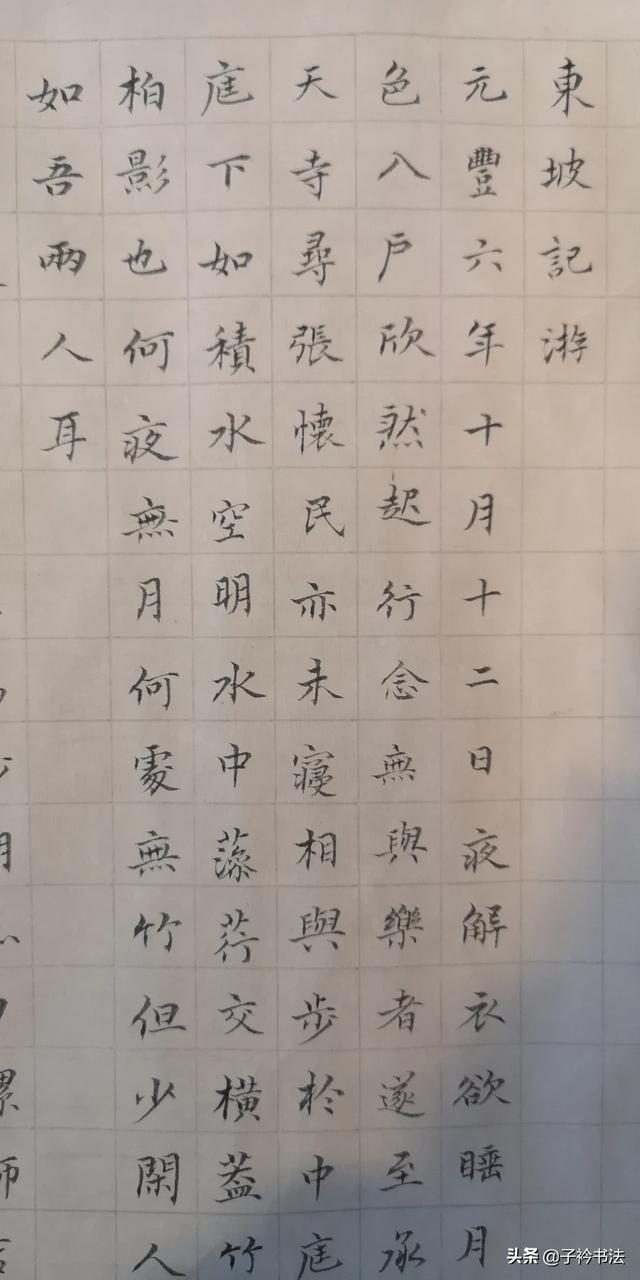 東坡記游
元豐六年十月十二日夜解衣欲睡月
色入户欣然起行念無與樂者遂至承
天寺尋張懷民亦未寢相與步於中庭
庭下如積水空明水中藻荇交橫蓋竹
柏影也何夜無月何處無竹但少閑人
如吾兩人耳
头条 @子衿书法